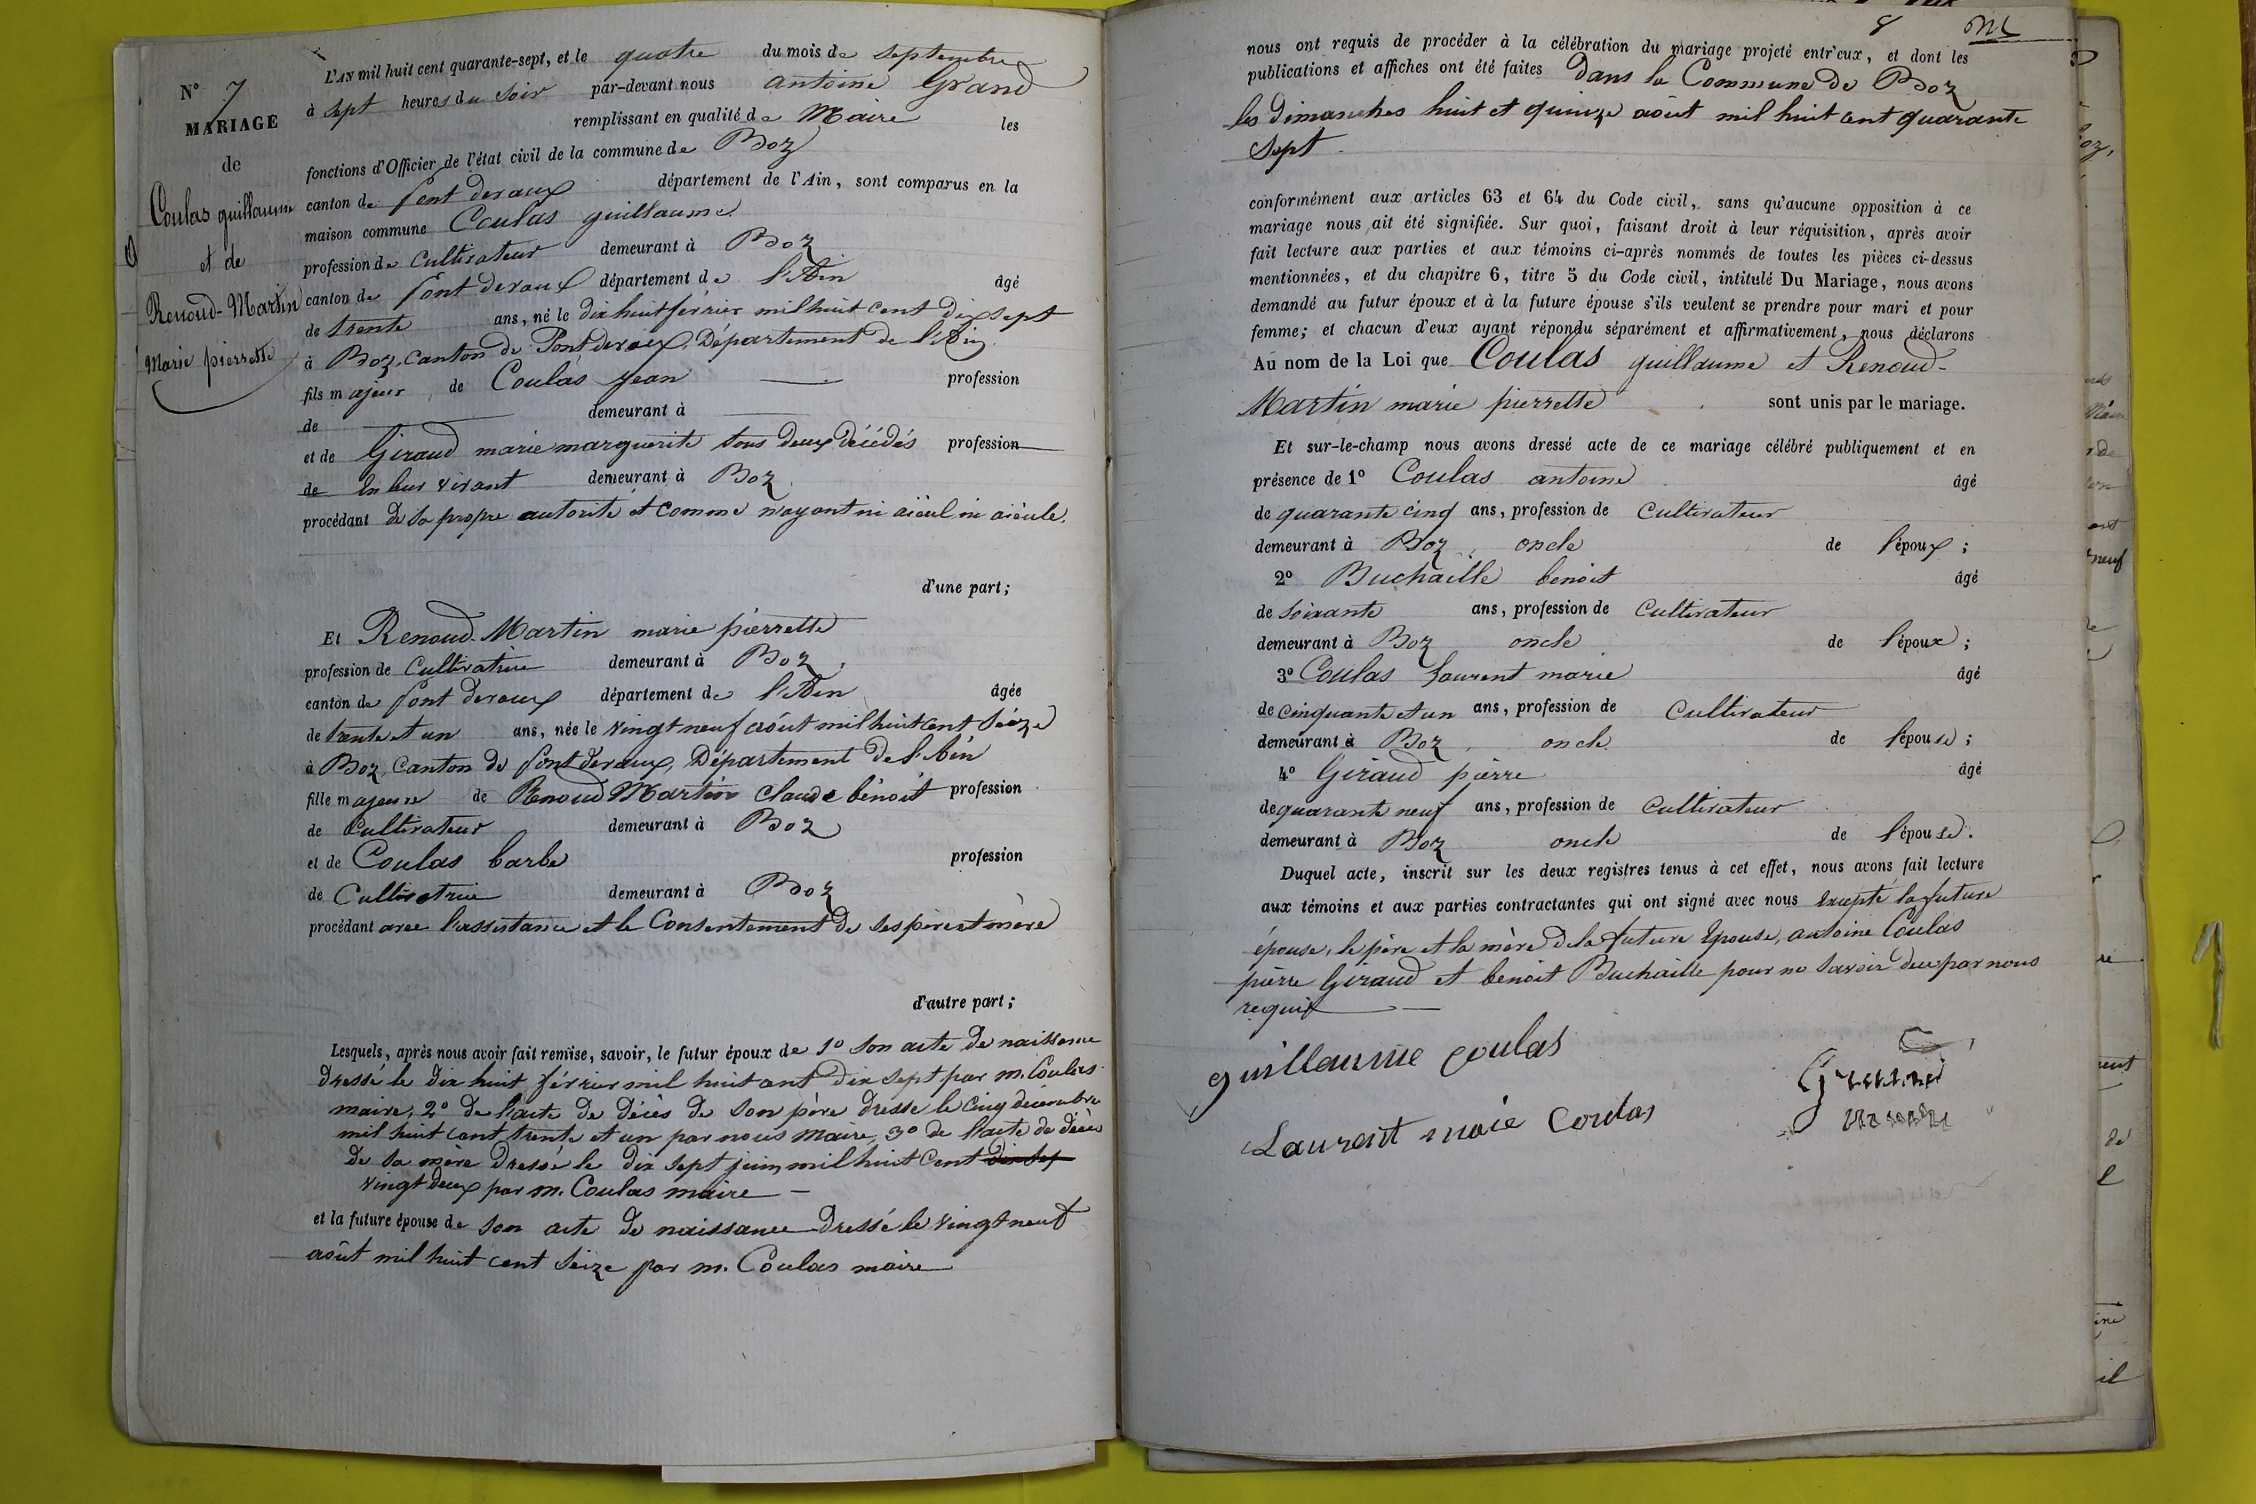 N° 7
MARIAGE
de
Coulas guillaume
et de
Renoud-Martin
Marie pierrette
L'AN mil huit cent quarante-sept, et le quatre du mois de septembre
à sept heures du soir par-devant nous antoine Grand
remplissant en qualité de Maire les
fonctions d'Officier de l'état civil de la commune de Boz
canton de Pont devaux département de l'Ain, sont comparus en la
maison commune Coulas guillaume
profession de Cultivateur demeurant à Boz
canton de Pont devaux département de l'Ain âgé
de trente ans, né le dix huit février mil huit cent dix sept
à Boz, Canton de Pont devaux, Département de l'Ain
fils majeur de Coulas jean profession
de demeurant à
et de Giraud marie marguerite tous deux décédés profession
de En leur vivant demeurant à Boz
procédant de sa propre autorité et comme n'ayant ni aïeul ni aieule.
d'une part;
Et Renoud-Martin marie pierrette
profession de Cultivatrice demeurant à Boz,
canton de Pont devaux département de l'Ain âgée
de trente et un ans, née le vingt neuf août mil huit cent seize
à Boz, Canton de Pont devaux, Département de l'Ain
fille majeure de Renoud Martin claude bénoit profession
de Cultivateur demeurant à Boz
et de Coulas barbe profession
de Cultivatrice demeurant à Boz
procédant avec l'assistance et le Consentement de ses père et mère
d'autre part;
Lesquels, après nous avoir fait remise, savoir, le futur époux de 1° son acte de naissance
dressé le dix huit février mil huit cent dix sept par m. Coulas
maire, 2° de l'acte de décès de son père dressé le cinq décembre
mil huit cent trente et un par nous maire, 3° de l'acte de décès
de sa mère dressé le dix sept juin mil huit cent dix sep
vingt deux par m. Coulas maire —
et la future épouse de son acte de naissance dressé le vingt neuf
août mil huit cent seize par m. Coulas maire
8
nous ont requis de procéder à la célébration du mariage projeté entr'eux, et dont les
publications et affiches ont été faites dans la Commune de Boz
les dimanches huit et quinze août mil huit cent quarante
sept.
conformément aux articles 63 et 64 du Code civil, sans qu'aucune opposition à ce
mariage nous ait été signifiée. Sur quoi, faisant droit à leur réquisition, après avoir
fait lecture aux parties et aux témoins ci-après nommés de toutes les pièces ci-dessus
mentionnées, et du chapitre 6, titre 5 du Code civil, intitulé Du Mariage, nous avons
demandé au futur époux et à la future épouse s'ils veulent se prendre pour mari et pour
femme; et chacun d'eux ayant répondu séparément et affirmativement, nous déclarons
Au nom de la Loi que Coulas guillaume et Renoud-
Martin marie pierrette sont unis par le mariage.
Et sur-le-champ nous avons dressé acte de ce mariage célébré publiquement et en
présence de 1° Coulas antoine âgé
de quarante cinq ans, profession de Cultivateur
demeurant à Boz, oncle de l'époux;
2° Buchaille benoit âgé
de soixante ans, profession de Cultivateur
demeurant à Boz oncle de l'époux;
3° Coulas Laurent marie âgé
de cinquante et un ans, profession de Cultivateur
demeurant à Boz, oncle de l'épouse;
4° Giraud pierre âgé
de quarante neuf ans, profession de Cultivateur
demeurant à Boz oncle de l'épouse.
Duquel acte, inscrit sur les deux registres tenus à cet effet, nous avons fait lecture
aux témoins et aux parties contractantes qui ont signé avec nous Excepté la future
épouse, le père et la mère de la future Epouse, antoine Coulas
pierre Giraud et benoit Buchaille pour ne savoir de ce par nous
requis
guillaume coulas
Laurent maie Coulas